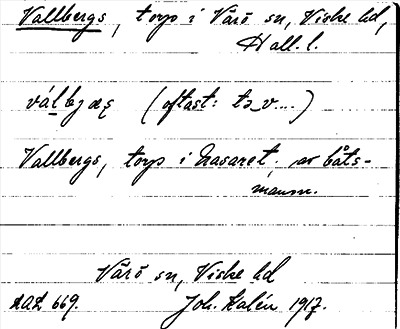 Vallbergs, torp i Värö sn, Viske hd,
Hall. l.
válbjæs (oftast: tə v....)
Vallbergs, torp i Nasaret, av båts-
mann.
Värö sn, Viske hd
AAL 669. Joh. Kalén 1917.